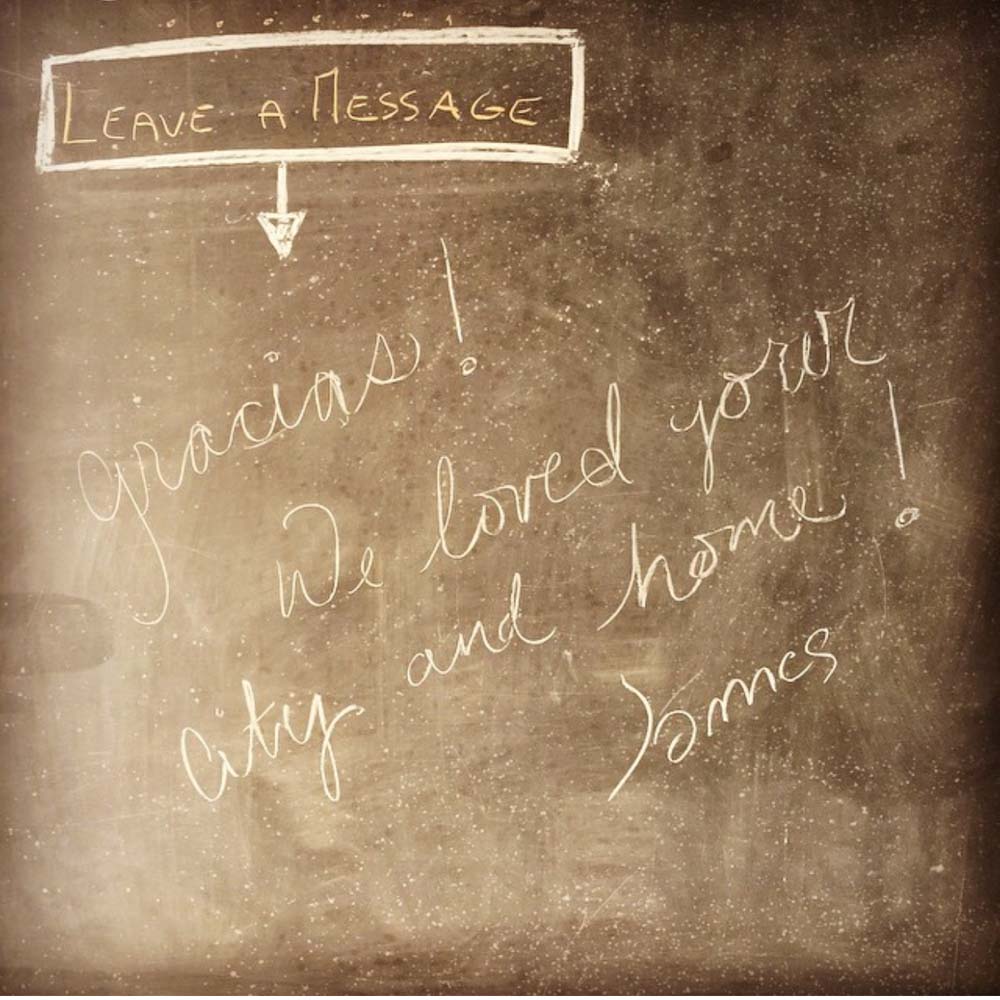 LEAVE A MESSAGE
gracias!
We loved your
city and home!
James